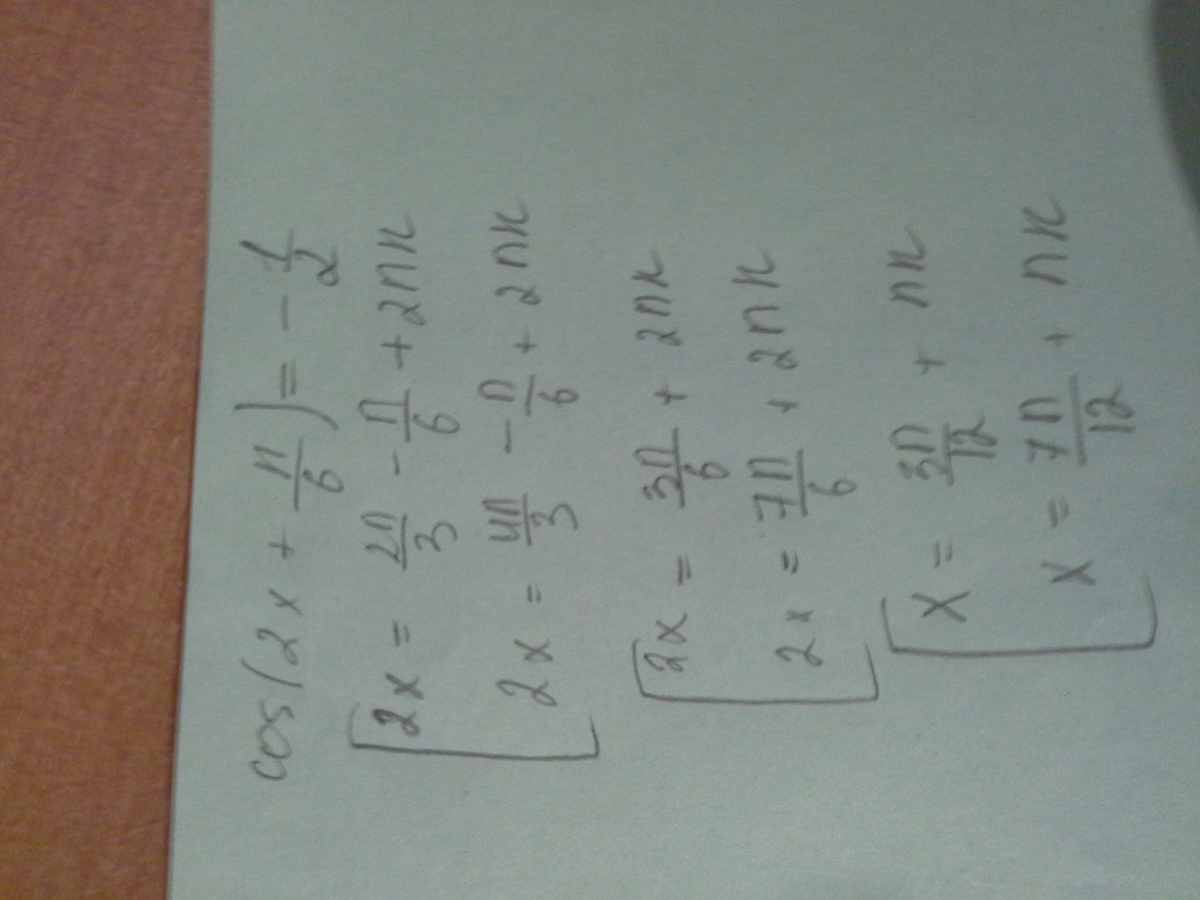 cos(2x + π/6) = - 1/2
2x = 2π/3 - π/6 + 2πk
2x = 4π/3 - π/6 + 2πk
2x = 3π/6 + 2πk
2x = 7π/6 + 2πk
x = 3π/12 + πk
x = 7π/12 + πk